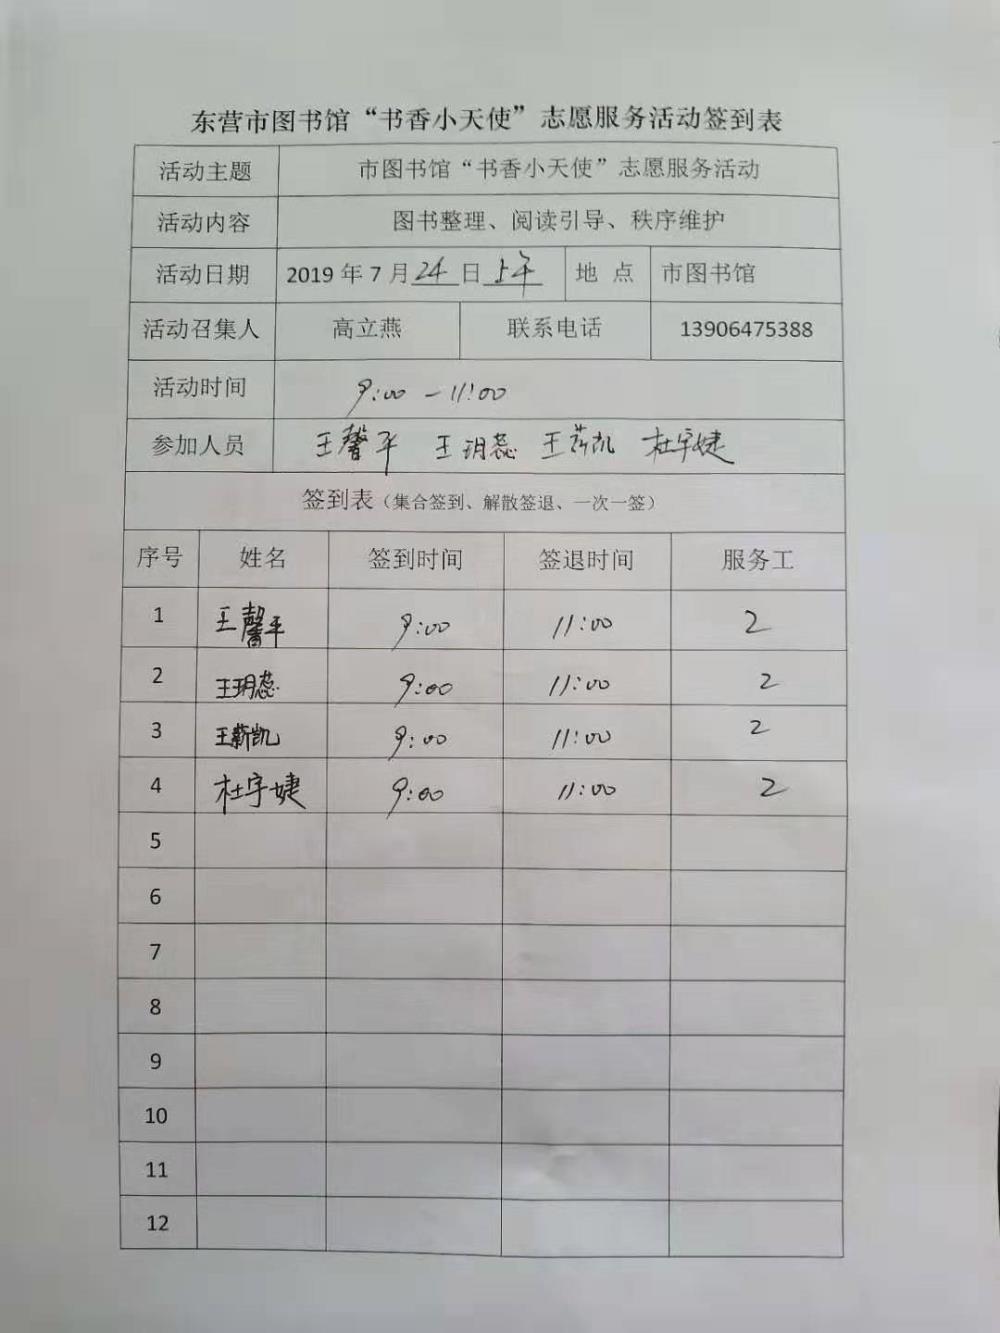 东营市图书馆“书香小天使”志愿服务活动签到表
活动主题 市图书馆“书香小天使”志愿服务活动
活动内容 图书整理、阅读引导、秩序维护
活动日期 2019 年 7 月 24 日 上午 地 点 市图书馆
活动召集人 高立燕 联系电话 13906475388
活动时间 9:00 — 11:00
参加人员 王馨平 王玥蕊 王薪凯 杜宇婕
签到表（集合签到、解散签退、一次一签）
序号 姓名 签到时间 签退时间 服务工
1 王馨平 9:00 11:00 2
2 王玥蕊 9:00 11:00 2
3 王薪凯 9:00 11:00 2
4 杜宇婕 9:00 11:00 2
5
6
7
8
9
10
11
12